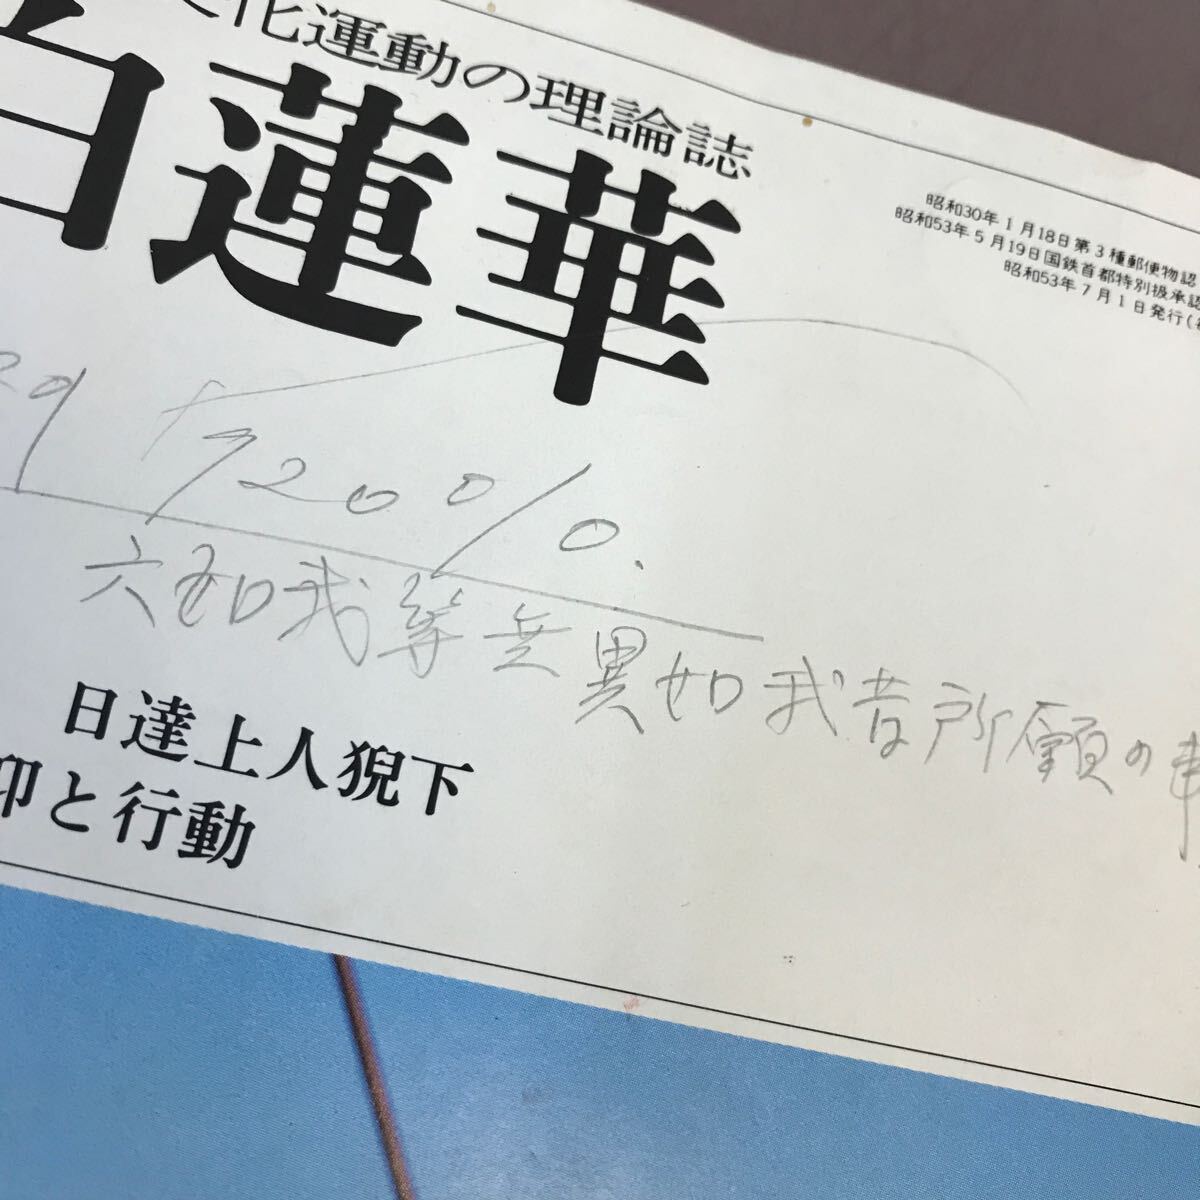 化運動の理論誌
白蓮華
昭和30年1月18日第3種郵便物認
昭和53年5月19日国鉄首都特別扱承認
昭和53年7月1日発行(
29 720%.
六 如我等無異如我昔所願の事
日達上人猊下
と行動